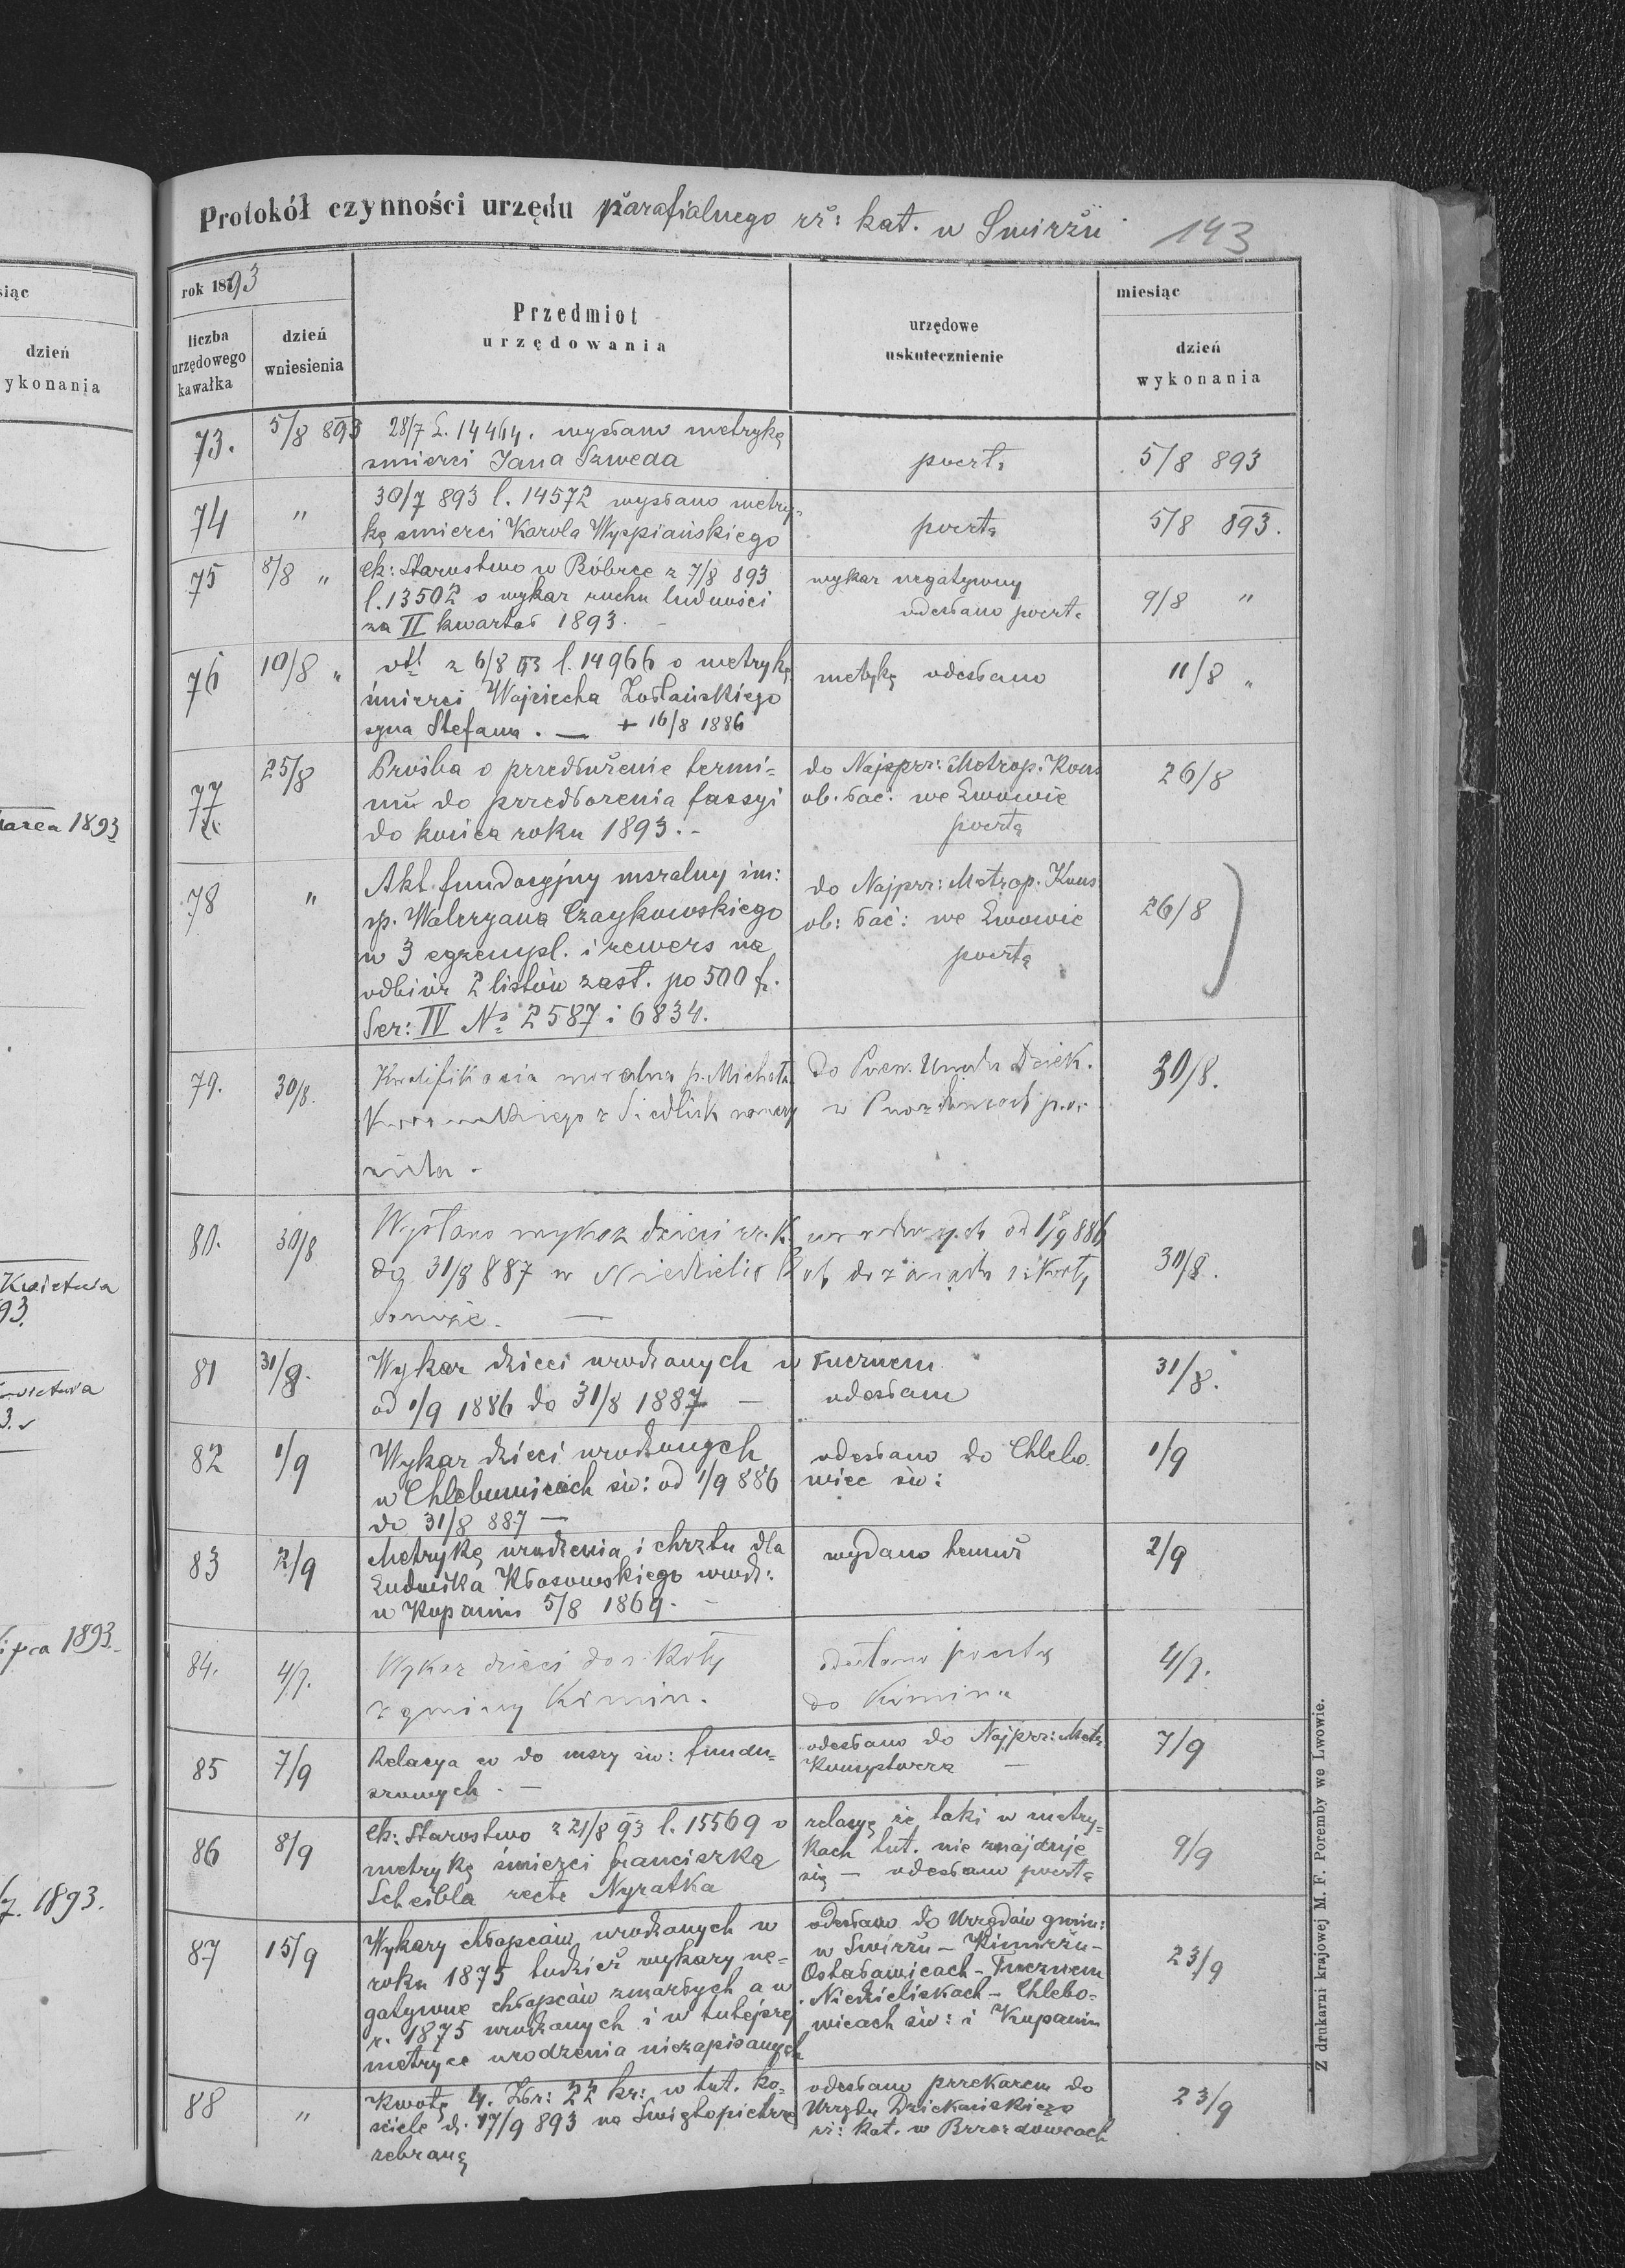 siąc
dzień
ykonania
arca 1893
Kwietnia
93.
3.
ipca 1893.
7. 1893.
Protokół czynności urzędu parafialnego rz: kat. w Swirzu 143
rok 1893
liczba
urzędowego
kawałka
dzień
wniesienia
Przedmiot
urzędowania
urzędowe
uskutecznienie
miesiąc
dzień
wykonania
73. 5/8 893 28/7 L. 14464. wysłano metrykę
smierci Jana Szweda pocztą 5/8 893
74 " 30/7 893 l. 14572 wysłano metry-
kę smierci Karola Wyspiańskiego pocztą 5/8 893.
75 8/8 " ck: Starostwo w Bóbrce z 7/8 893 wykaz negatywny
l. 13502 o wykaz ruchu ludności odesłano pocztą 9/8 "
za II kwartał 1893.
76 10/8 " z 6/8 93 l. 14966 o metrykę metykę odesłano 11/8 "
śmierci Wojciecha
syna Stefana. — + 16/8 1886
77 25/8 Prośba o przedłużenie termi= do Najprz: Metrop: Kons 26/8
nu do przedłożenia fassyi ob. łac: we Lwowie
do końca roku 1893. - pocztą
78 " Akt fundacyjny mszalny im: do Najprz: Metrop: Kons
sp. Waleryana Czaykowskiego ob: łać: we Lwowie 26/8
w 3 egzempl. i rewers na pocztą
odbiór 2 listów zast. po 500 f.
Ser: IV No 2587 i 6834.
79. 30/8. Kwalifikacia moralna p. Michała Do Dziek. 30/8.
z Siedlisk
80. 30/8 Wysłano wykaz dzieci rz. k. urodzonych od 1/9 886
do 31/8 887 w Niedzielisk do Zarządu szkoły 30/8.
81 31/8. Wykaz dzieci urodzonych w Tucznem 31/8.
od 1/9 1886 do 31/8 1887 — odesłano
82 1/9 Wykaz dzieci urodzonych odesłano do Chlebo 1/9
w Chlebowicach św: od 1/9 886 wiec św:
do 31/8 887 —
83 2/9 Metrykę urodzenia i chrztu dla wydano temuż 2/9
Ludwika Kłosowskiego urodz:
w Kopaniu 5/8 1869. -
84. 4/9. Wykaz dzieci do szkoły odesłano pocztą 4/9.
z gminy Kimirz. do Kimirza
85 7/9 Relacya co do mszy św: fundu= odesłano do Najprz: Metr. 7/9
szowych. — Konsystorza —
86 8/9 ck: Starostwo z 21/8 93 l. 15569 o relacyę że taki w metry=
metrykę śmierci Franciszka kach tut. nie znajduje 9/9
Scheibla recte Nyratka się — odesłano pocztą
87 15/9 Wykazy chłopców urodzonych w odesłano do Urzędów gmin:
roku 1875 tudzież wykazy ne= w Swirzu - Kimirzu - 23/9
gatywne chłopców zmarłych a w Ostałowicach - Tucznem
r. 1875 urodzonych i w tutejszej Niedzieliskach - Chlebo=
metryce urodzenia niezapisanych wicach św: i Kopaniu
88 " Kwotę 4. Złr: 22 kr: w tut. ko= odesłano przekazem do 23/9
ściele d. 17/9 893 na Świętopietrze Urzędu Dziekańskiego
zebraną rz: kat. w Brzozdowcach
Z drukarni krajowej M. F. Poremby we Lwowie.